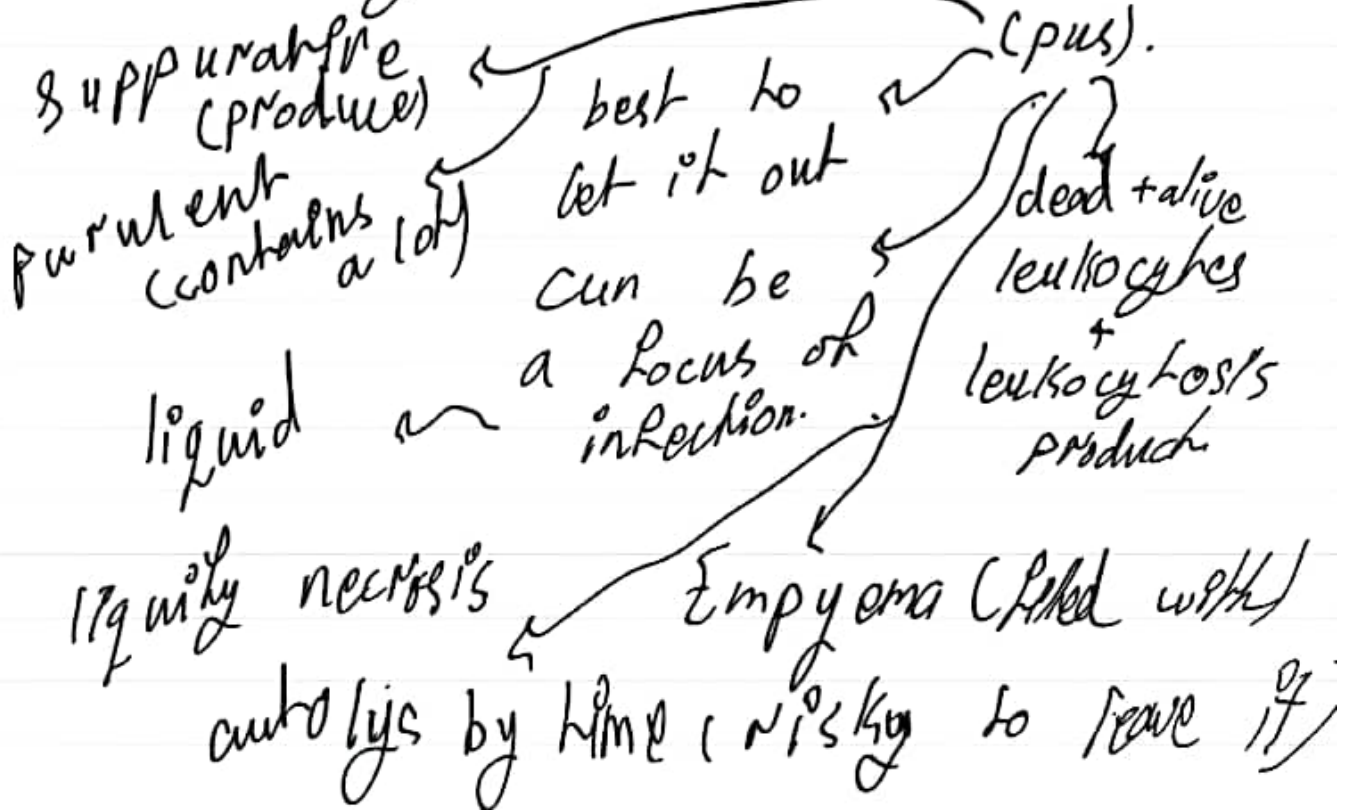 suppurative
(produce)
purulent
(contains
a lot)
(pus).
best to
let it out
can be
a focus of
infection.
dead + alive
leukocytes
+
leukocytosis
product
liquid
liquify necrosis
Empyema (filled with)
autolys by time (risky to leave it)